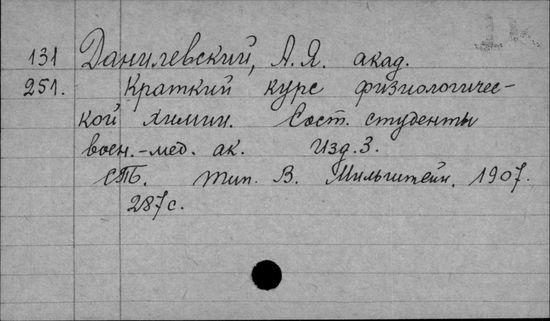 131 Данилевский, А.Я. акад.
251. Краткий курс физиологичес-
кой химии. Сост. студенты
воен.-мед. ак. Изд. 3.
СПб. тип. В. Мильштейн. 1907.
287 с.